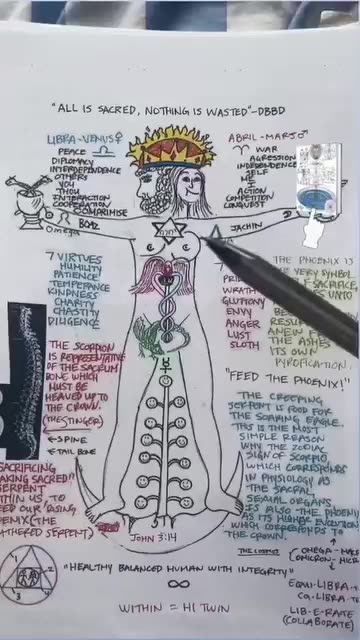 "ALL IS SACRED, NOTHING IS WASTED"-DBBD
LIBRA-VENUS♀
PEACE ♎
DIPLOMACY
INTERDEPENDENCE
OTHERS
YOU
THOU
INTERACTION
COOPERATION
COMPARIMISE
Omega
BOAZ
ABRIL-MARS♂
♈ WAR
AGRESSION
INDEPENDENCE
SELF
ME
I
ACTION
COMPETITION
CONQUEST
JACHIN
7 VIRTUES
HUMILITY
PATIENCE
TEMPERANCE
KINDNESS
CHARITY
CHASTITY
DILIGENCE
WRATH
GLUTTONY
ENVY
ANGER
LUST
SLOTH
THE PHOENIX IS
THE VERY SYMBOL
SACRIFICE,
UNTO
THE ASHES
ITS OWN
PYROFICATION.
"FEED THE PHOENIX!"
THE SCORPION
IS REPRESENTATIVE
OF THE SACRUM
BONE WHICH
MUST BE
HEAVED UP TO
THE CROWN.
(THE STINGER)
←SPINE
←TAIL BONE
THE CREEPING
SERPENT IS FOOD FOR
THE SOARING EAGLE.
THIS IS THE MOST
SIMPLE REASON
WHY THE ZODIAC
SIGN OF SCORPIO,
WHICH CORRESPONDS
IN PHYSIOLOGY AS
THE SACRAL
SEXUAL ORGANS
IS ALSO THE PHOENIX
AS ITS HIGHER EVOLUTION
WHICH CORRESPONDS TO
THE CROWN.
SACRIFICING
SERPENT
US, TO
RISING
(THE
SERPENT)
John 3:14
1
2
3
4
"HEALTHY BALANCED HUMAN WITH INTEGRITY"
∞
WITHIN = HI TWIN
EQUI-LIBRA-
LIB-E-RATE
(COLLABORATE)